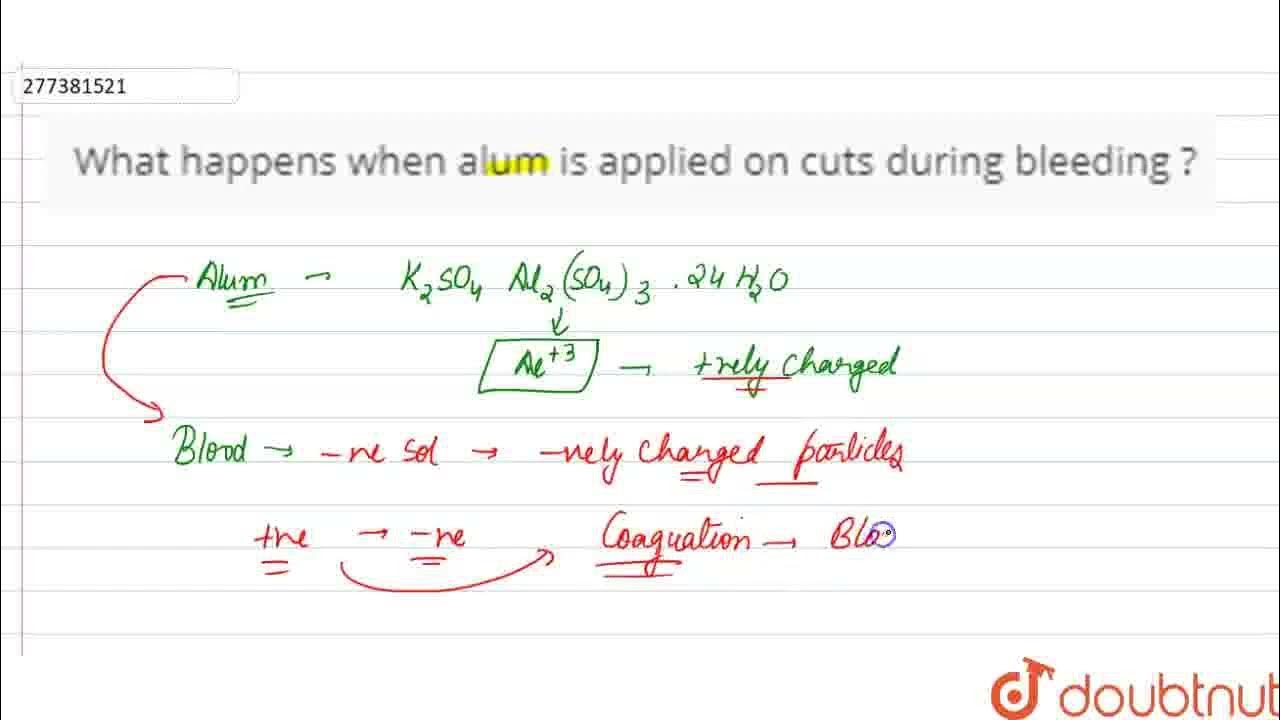 277381521
What happens when alum is applied on cuts during bleeding ?
Alum → K₂SO₄ Al₂(SO₄)₃ . 24 H₂O
Al⁺³ → +vely charged
Blood → -ve sol → -vely charged particles
+ve → -ve Coaguation → Blo
doubtnut